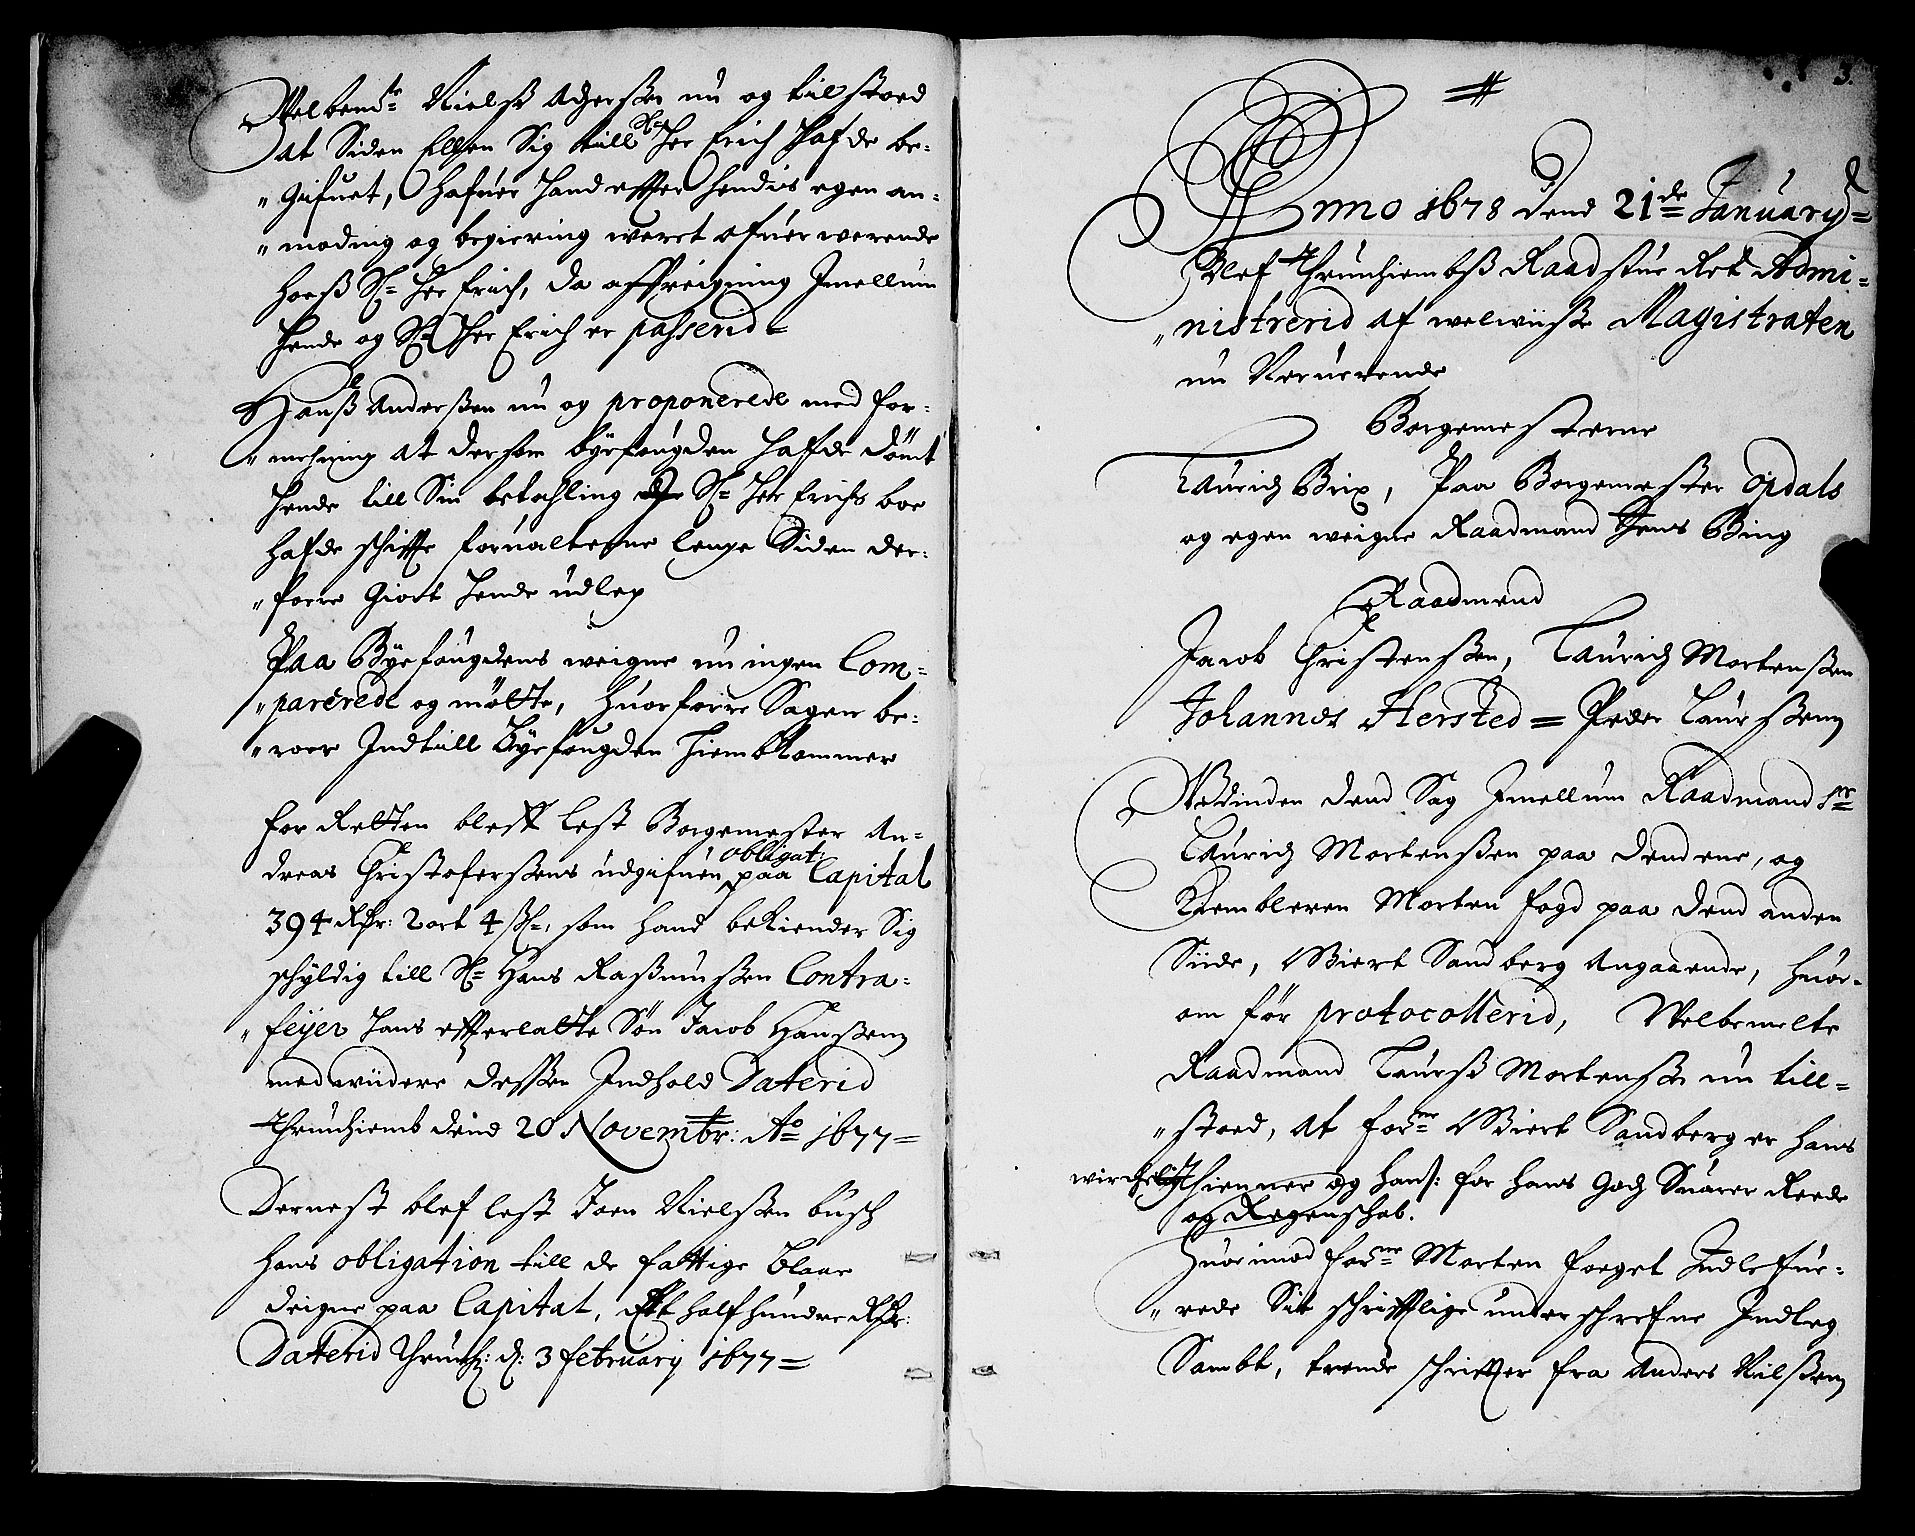 Welbemte Nielss Adzerssen nu og tilstoed
at Siden Ellsen Sig till Sl: Her Erich Hafde be-
gifuet, Hafuer Hand effter hendis egen an-
moding og begiering weret ofuerwerende
hoess Sl: Her Erich, da affreigning Imellum
Hende og Sl: Her Erich er passerid
Hanss Anderssen nu og proponerede med for-
mehning at dersom byefougden Hafde dömt
Hende till Sin betahling af Sl: Her Erichs boe
Hafde schiffte forualterne lenge Siden der-
forre Giort Hende udleg
Paa Byefougdens weigne nu ingen Com-
parerede og mötte, Huorforre Sagen be-
roer Indtill Byefougden Hiembkommer
For Retten bleff lest Borgemester An-
dreas Christoferssens udgifuen obligat: paa Capital
394 Rdr: 2 ort 4 ss:, som hand bekiender Sig
schyldig till Sl: Hans Rassmussen Contra-
feyer Hans effterlatte Sön Jacob Hanssen
med widere dessen Indhold Daterid
Thrundhiemb dend 20 Novembr: Ao 1677
Dernest blef lest Joen Nielssen busch
Hans obligation till de fattige blaae
deigne paa Capital, Et halfhundre Rdr:
Daterid Thrundh: d: 3 February 1677
3.
Anno 1678 dend 21de January
Blef Thrundhiembss Raadstue Ret Admi-
nistrerid af welwiise Magistraten
nu Neruerende
Borgemesterne
Lauridz Brix, Paa Borgemester Opdals
og egen weigne Raadmand Jens Bing
Raadmend
Jacob Christenssen, Lauridz Mortenssen
Johannes Hersted Peder Laurssenn
Wedinden dend Sag Imellum Raadmand Sr
Lauridz Mortenssen paa dend ene, og
Kembleren Morten fogd paa dend anden
Siide, Wiert Sandberg Angaaende, huor-
om för protocollerid, Welbemelte
Raadmand Laurss Mortenssen nu till-
stoed, at forne Wiert Sandberg er hans
wirchelig Thienner og hand: for hans Godz Suarer Reede
og Regenschab.
Huorimod forne Morten foeget Indlefue-
rede Sit schrifftlige underschrefne Indleg
Sambt, trende schriffter fra Anders Nilssenn